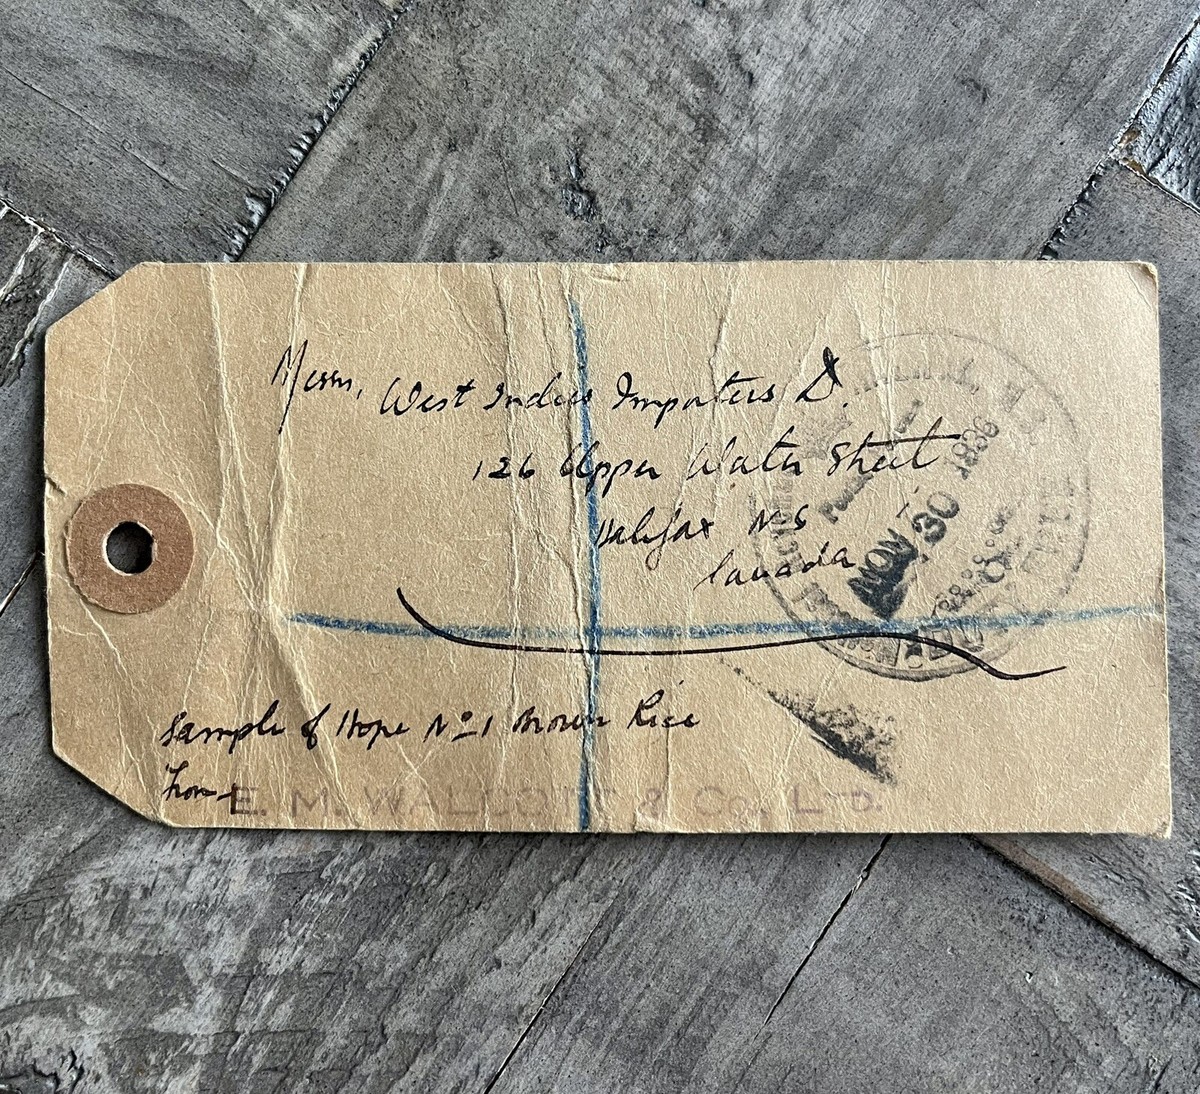 Messrs, West Indies Importers Lt.
126 Upper Water Street
Halifax N.S
Canada
NOV 30 1936
Sample of Hope No 1 Brown Rice
From E. M. WALCOTT & Co., LTD.